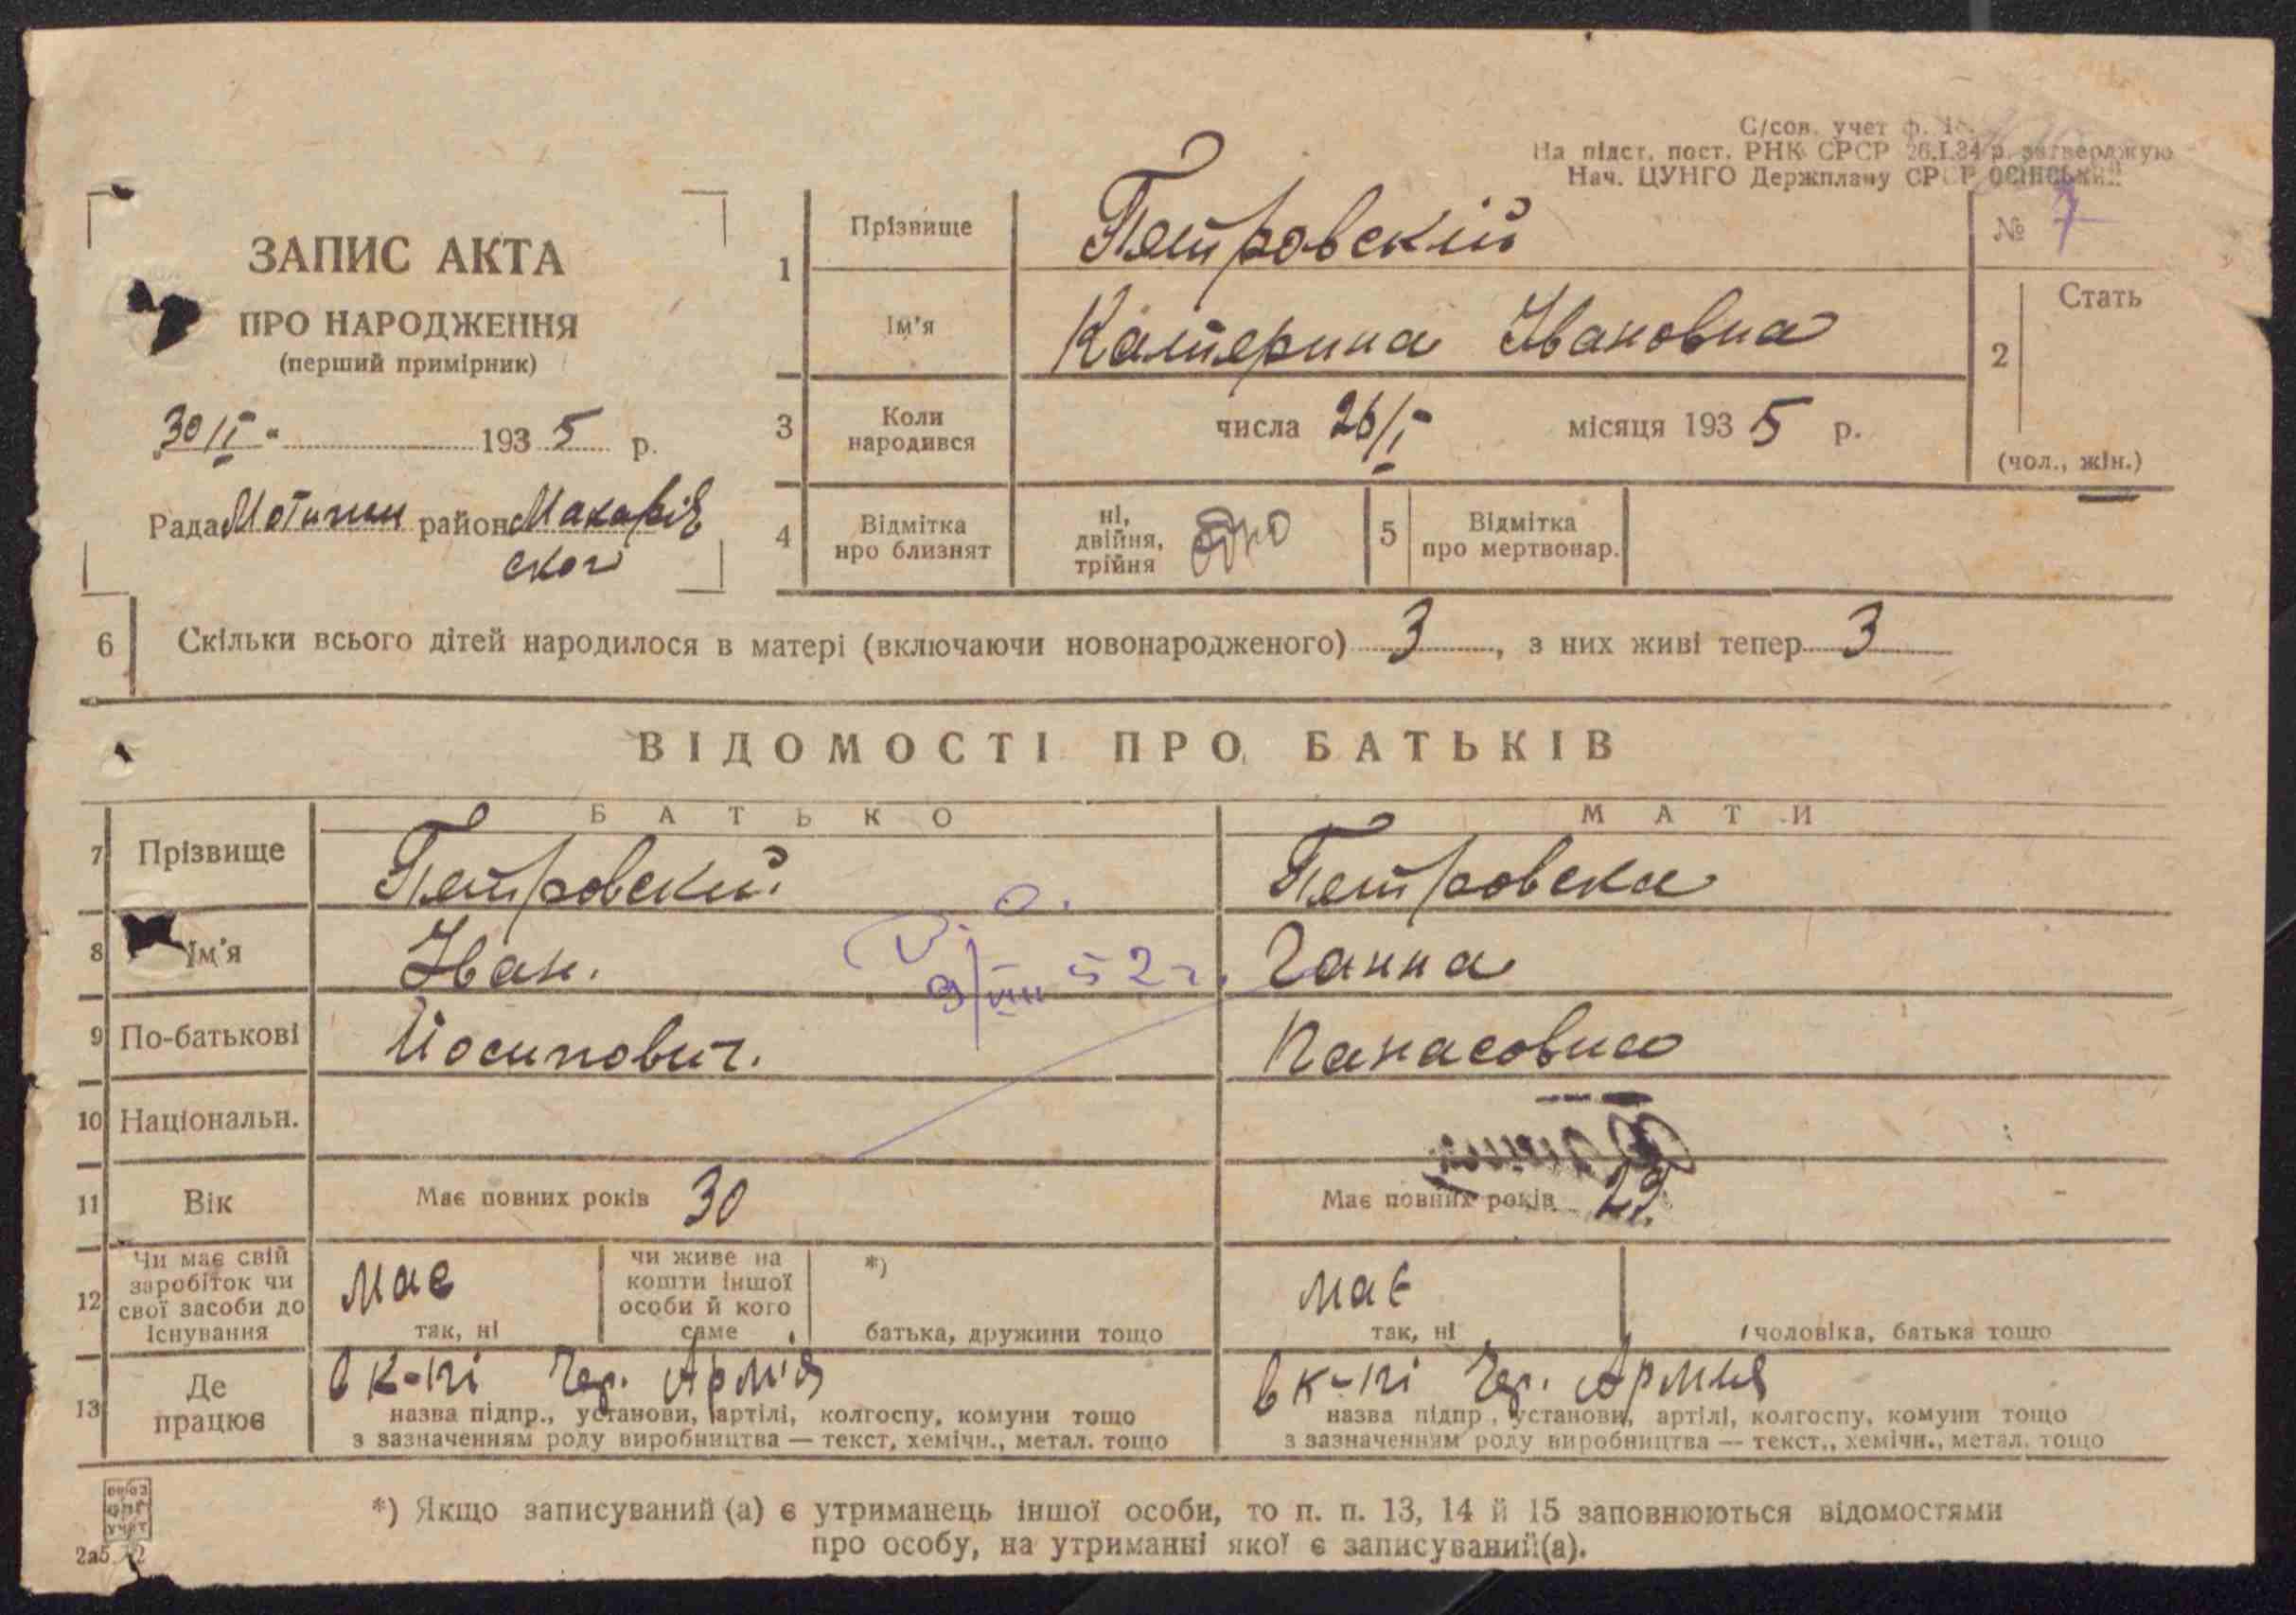 С/сов. учет ф. 1
На підст. пост. РНК СРСР 26.I.34 р. затверджую
Нач. ЦУНГО Держплану СРСР ОСІНСЬКИЙ
№ 7
ЗАПИС АКТА
ПРО НАРОДЖЕННЯ
(перший примірник)
30/I - 1935 р.
Рада Мотижин район Макарів
ского
1 Прізвище Петровскій
Ім'я Катерина Івановна
2 Стать
(чол., жін.)
3 Коли народився числа 26/I місяця 1935 р.
4 Відмітка про близнят ні, двійня, трійня одно
5 Відмітка про мертвонар.
6 Скільки всього дітей народилося в матері (включаючи новонародженого) 3, з них живі тепер 3
ВІДОМОСТІ ПРО БАТЬКІВ
БАТЬКО МАТИ
7 Прізвище Петровский Петровска
8 Ім'я Іван. Ганна
9/VIII 52 г.
9 По-батькові Йосипович. Панасовна
10 Національн.
11 Вік Має повних років 30 Має повних років 29
12 Чи має свій заробіток чи свої засоби до існування
має
так, ні
чи живе на кошти іншої особи й кого саме
*)
батька, дружини тощо
має
так, ні
чоловіка, батька тощо
13 Де працює
в к-пі Чер. Армія
назва підпр., установи, артілі, колгоспу, комуни тощо
з зазначенням роду виробництва — текст, хемічн., метал. тощо
в к-пі Чер. Армия
назва підпр., установи, артілі, колгоспу, комуни тощо
з зазначенням роду виробництва — текст., хемічн., метал. тощо
*) Якщо записуваний (а) є утриманець іншої особи, то п. п. 13, 14 й 15 заповнюються відомостями
про особу, на утриманні якої є записуваний(а).